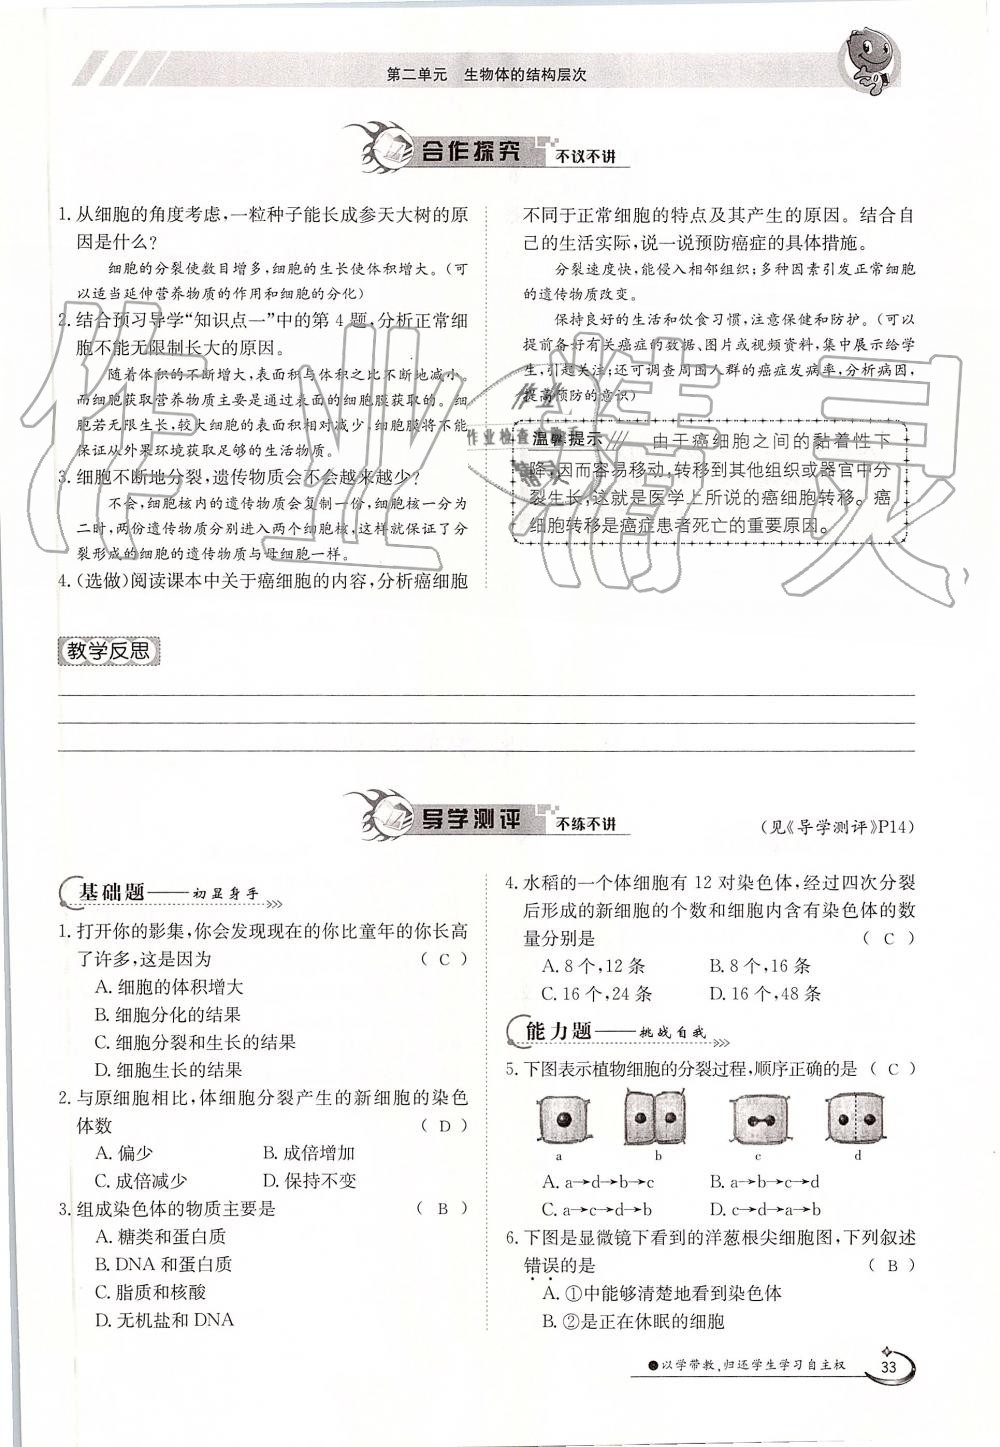 第二单元 生物体的结构层次
合作探究 不议不讲
1. 从细胞的角度考虑,一粒种子能长成参天大树的原
因是什么?
细胞的分裂使数目增多,细胞的生长使体积增大。(可
以适当延伸营养物质的作用和细胞的分化)
2. 结合预习导学“知识点一”中的第 4 题,分析正常细
胞不能无限制长大的原因。
随着体积的不断增大,表面积与体积之比不断地减小。
而细胞获取营养物质主要是通过表面的细胞膜获取的。细
胞若无限生长,较大细胞的表面积相对减少,细胞膜将不能
保证从外界环境获取足够的生活物质。
3. 细胞不断地分裂,遗传物质会不会越来越少?
不会,细胞核内的遗传物质会复制一份,细胞核一分为
二时,两份遗传物质分别进入两个细胞核,这样就保证了分
裂形成的细胞的遗传物质与母细胞一样。
4. (选做)阅读课本中关于癌细胞的内容,分析癌细胞
不同于正常细胞的特点及其产生的原因。结合自
己的生活实际,说一说预防癌症的具体措施。
分裂速度快,能侵入相邻组织;多种因素引发正常细胞
的遗传物质改变。
保持良好的生活和饮食习惯,注意保健和防护。(可以
提前备好有关癌症的数据、图片或视频资料,集中展示给学
生,引起关注;还可调查周围人群的癌症发病率,分析病因,
提高预防的意识)
温馨提示 由于癌细胞之间的黏着性下
降,因而容易移动,转移到其他组织或器官中分
裂生长,这就是医学上所说的癌细胞转移。癌
细胞转移是癌症患者死亡的重要原因。
作业精灵
作业
作业检查小助手
精灵
教学反思
导学测评 不练不讲
(见《导学测评》P14)
基础题——初显身手
1. 打开你的影集,你会发现现在的你比童年的你长高
了许多,这是因为 ( C )
A. 细胞的体积增大
B. 细胞分化的结果
C. 细胞分裂和生长的结果
D. 细胞生长的结果
2. 与原细胞相比,体细胞分裂产生的新细胞的染色
体数 ( D )
A. 偏少 B. 成倍增加
C. 成倍减少 D. 保持不变
3. 组成染色体的物质主要是 ( B )
A. 糖类和蛋白质
B. DNA 和蛋白质
C. 脂质和核酸
D. 无机盐和 DNA
4. 水稻的一个体细胞有 12 对染色体,经过四次分裂
后形成的新细胞的个数和细胞内含有染色体的数
量分别是 ( C )
A. 8 个,12 条 B. 8 个,16 条
C. 16 个,24 条 D. 16 个,48 条
能力题——挑战自我
5. 下图表示植物细胞的分裂过程,顺序正确的是 ( C )
a b c d
A. a→d→b→c B. a→b→c→d
C. a→c→d→b D. c→d→a→b
6. 下图是显微镜下看到的洋葱根尖细胞图,下列叙述
错误的是 ( B )
A. ①中能够清楚地看到染色体
B. ②是正在休眠的细胞
●以学带教,归还学生学习自主权 33